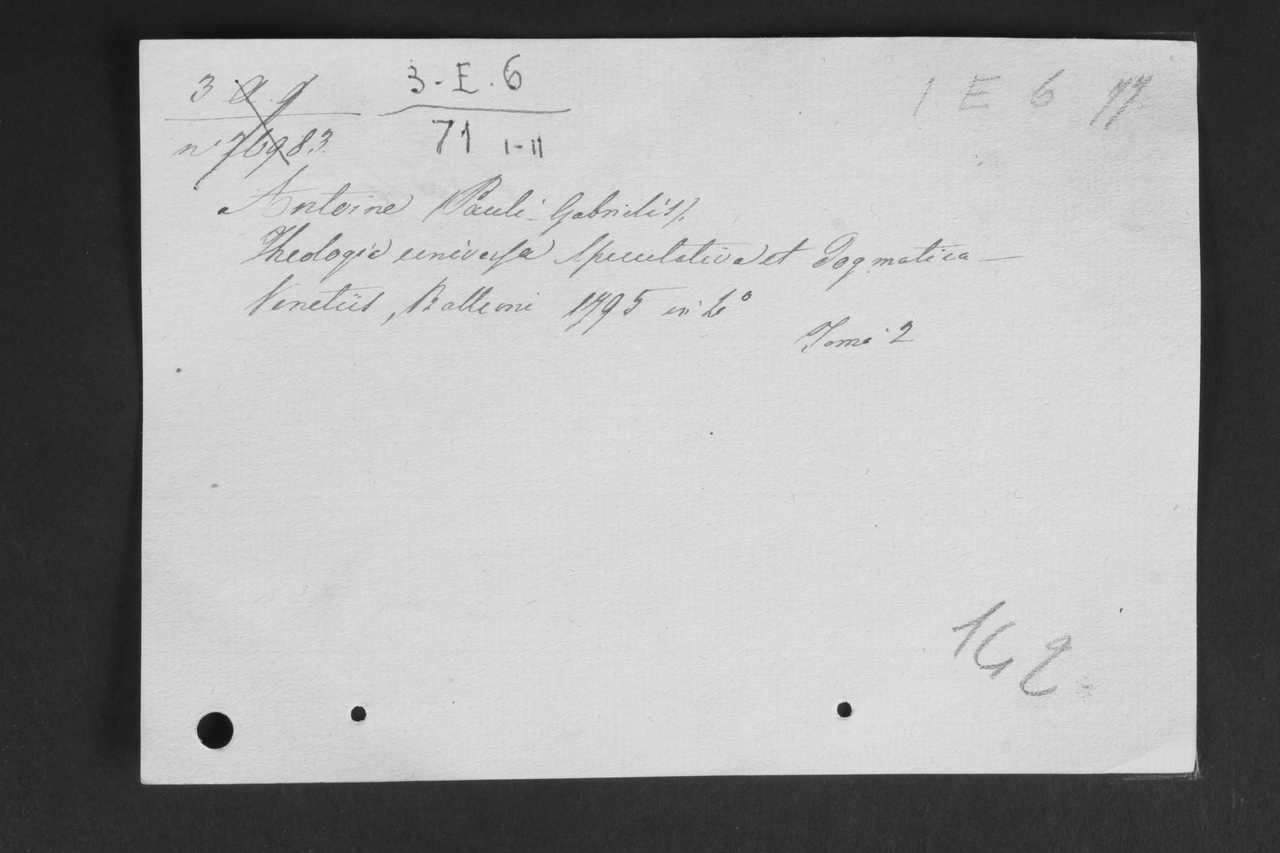 3-E.6
1 E 6 77
71 I-II
Antoine Pauli Gabrielis/.
Theologia universa speculativa et Dogmatica —
Venetiis, Balleoni 1795 in 4°
Tomi 2
142